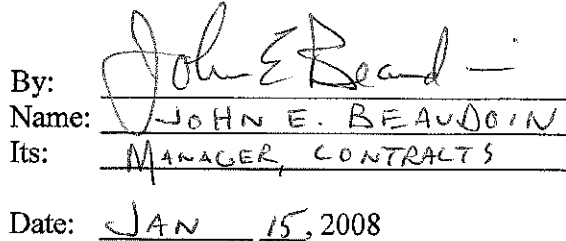 By: John E Beaudoin
Name: JOHN E. BEAUDOIN
Its: MANAGER, CONTRACTS
Date: JAN 15, 2008